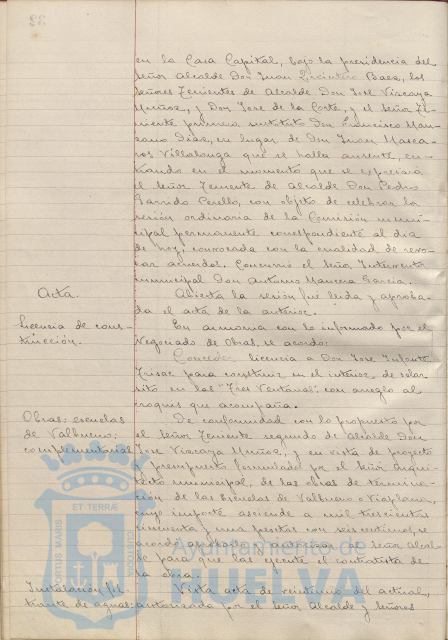 en la Casa Capital, bajo la presidencia del
Señor Alcalde Don Juan Quintero Baez, los
Señores Tenientes de Alcalde Don José Vizcaya
Muñoz, y Don José de la Corte, y el Señor Te-
niente primero sustituto Don Francisco Man-
zano Díaz, en lugar de Don Juan Masca-
ros Villalonga que se halla ausente, en-
trando en el momento que se expresará
el Señor Teniente de Alcalde Don Pedro
Garrido Perelló, con objeto de celebrar la
sesión ordinaria de la Comisión muni-
cipal permanente correspondiente al dia
de hoy, convocada con la cualidad de revo-
car acuerdos. Concurrió el Señor Interventor
municipal Don Antonio Mancera García.
Acta.
Abierta la sesión fué leida y aproba-
da el acta de la anterior.
Licencia de cons-
trucción.
En armonia con lo informado por el
Negociado de Obras, se acordó:
Conceder licencia a Don José Infante
para construir en el interior de solar
sito en las "Tres Ventanas" con arreglo al
croquis que acompaña.
Obras: escuelas
de Valbueno;
complementarias
De conformidad con lo propuesto por
el Señor Teniente segundo de Alcalde Don
José Vizcaya Muñoz, y en vista de proyecto
y presupuesto formulado por el Señor Arqui-
tecto municipal, de las obras de termina-
ción de las Escuelas de Valbueno o Viaplana,
cuyo importe asciende a mil trescientas
cincuenta y una pesetas con seis centimos, se
acordó aprobarlo y autorizar al Señor Alcal-
de para que las ejecute el contratista de
la obra.
Instalación
tránte de aguas
Vista acta de veintiuno del actual,
autorizada por el Señor Alcalde y Señores
PORTUS MARIS ET TERRAE CUSTODIA
Ayuntamiento de
HUELVA